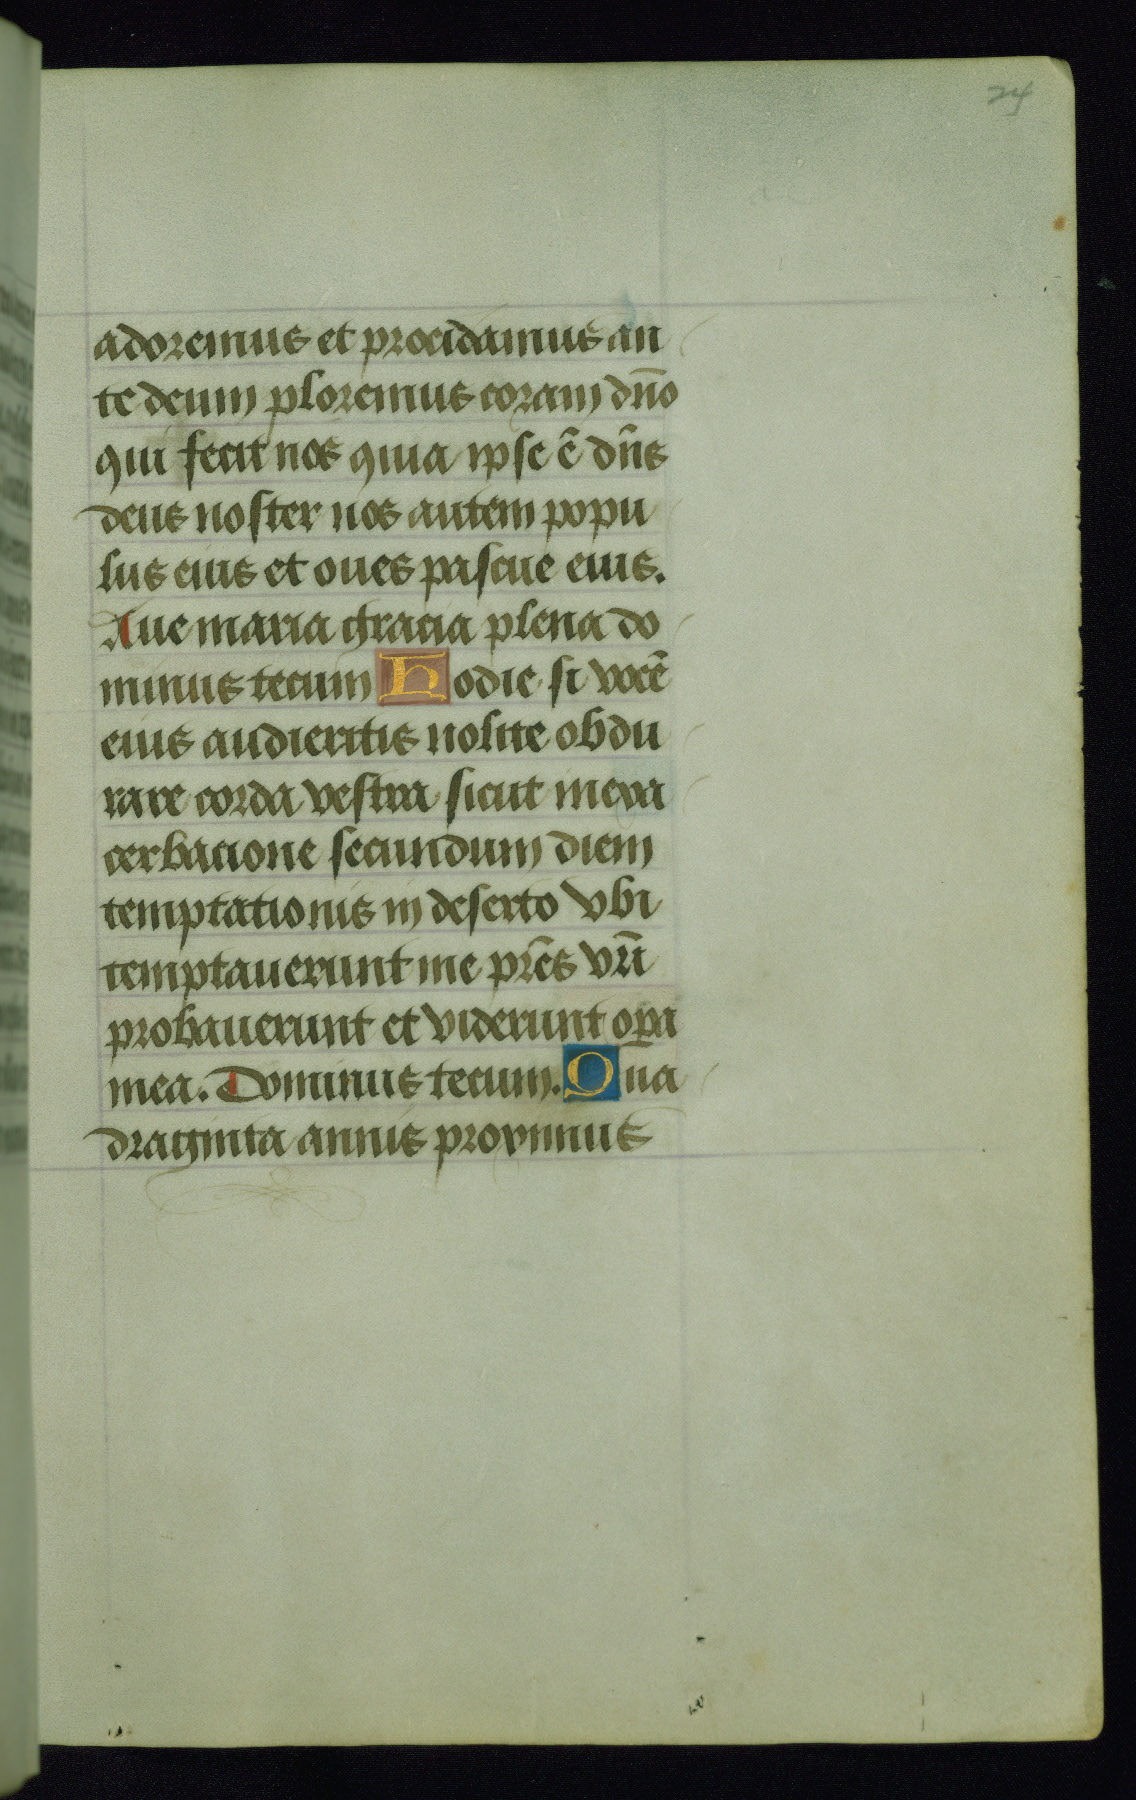 24
adoremus et procidamus an
te deum ploremus coram dn̄o
qui fecit nos quia ipse ē dn̄s
deus noster nos autem popu
lus eius et oues pascue eius.
Aue maria gracia plena do
minus tecum Hodie si vocē
eius audieritis nolite obdu
rare corda vestra sicut in exa
cerbacione secundum diem
temptationis in deserto Vbi
temptauerunt me pr̄es vr̄i
probauerunt et viderunt op̄a
mea. Dominus tecum. Qua
draginta annis proximus